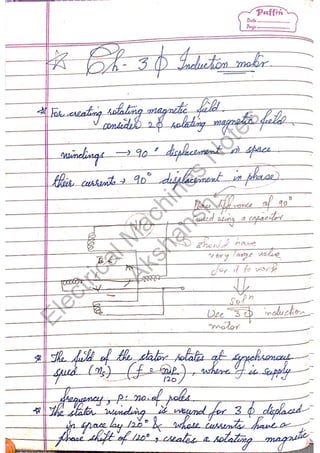 Puffin
Date
Page
Ch- 3 ϕ Induction motor
* For creating rotating magnetic field
consider 2ϕ rotating magnetic field
windings → 90° displacement in space
their currents → 90° displacement in phase
Phase difference of 90°
used using a capacitor
should have
very large value
for it to work
Sol^n
Use 3ϕ induction
motor
* The field of the stator rotates at synchronous
speed (ns) (f = nPs/120), where f is supply
frequency, P: no. of poles.
* The stator winding is wound for 3 ϕ displaced
in space by 120° & whose currents have a
phase shift of 120°, creates a rotating magnetic
Electrical Machines Notes